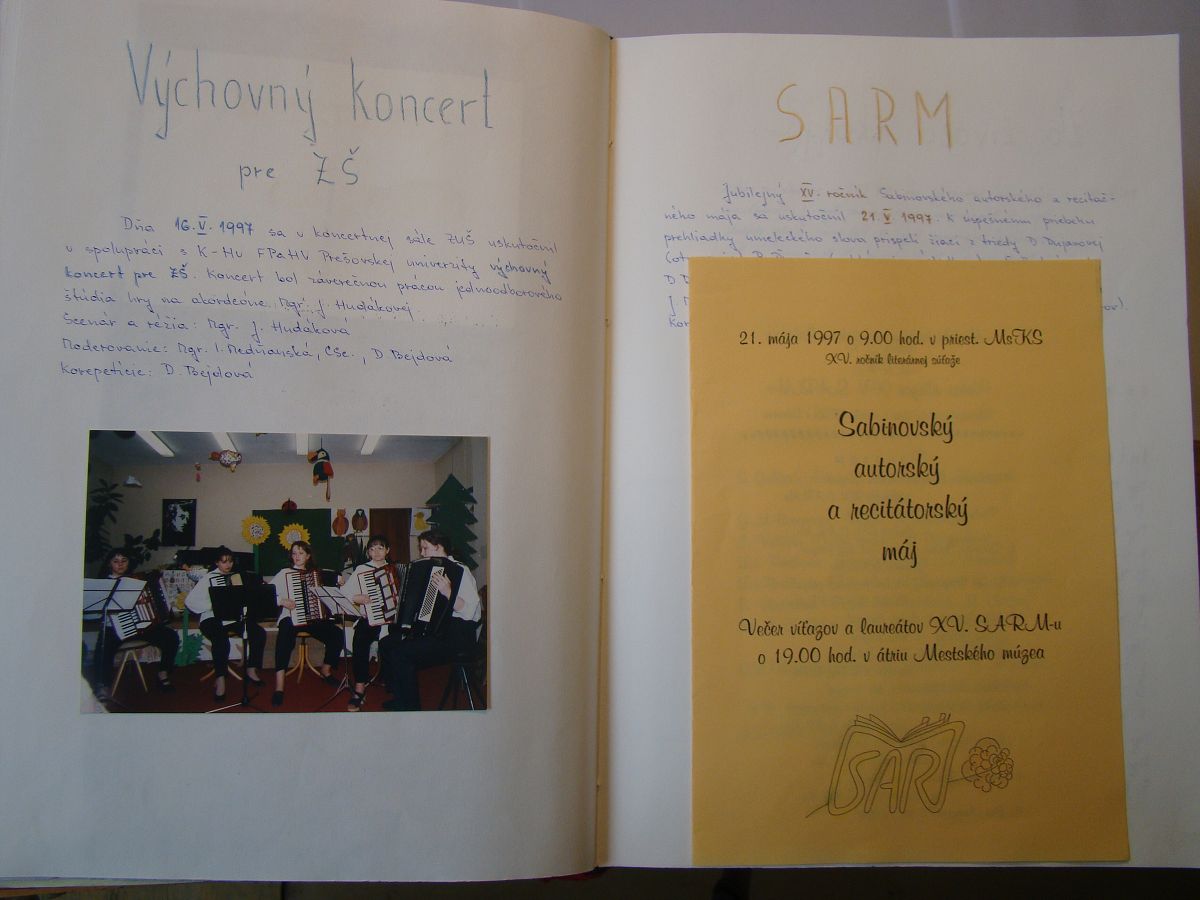 Výchovný koncert
pre ZŠ
Dňa 16. V. 1997 sa v koncertnej sále ZUŠ uskutočnil
v spolupráci s K-Hv FPaHV Prešovskej univerzity výchovný
koncert pre ZŠ. Koncert bol záverečnou prácou jednoodborového
štúdia hry na akordeóne Mgr. J. Hudákovej.
Scenár a réžia: Mgr. J. Hudáková
Moderovanie: Mgr. I. Medňanská, CSc., D. Bejdová
Korepetície: D. Bejdová
SARM
Jubilejný XV. ročník Sabinovského autorského a recitač-
ného mája sa uskutočnil 21. V. 1997. K úspešnému priebehu
prehliadky umeleckého slova prispeli žiaci z triedy D.
21. mája 1997 o 9.00 hod. v priest. MsKS
XV. ročník literárnej súťaže
Sabinovský
autorský
a recitátorský
máj
Večer víťazov a laureátov XV. SARM-u
o 19.00 hod. v átriu Mestského múzea
SARM